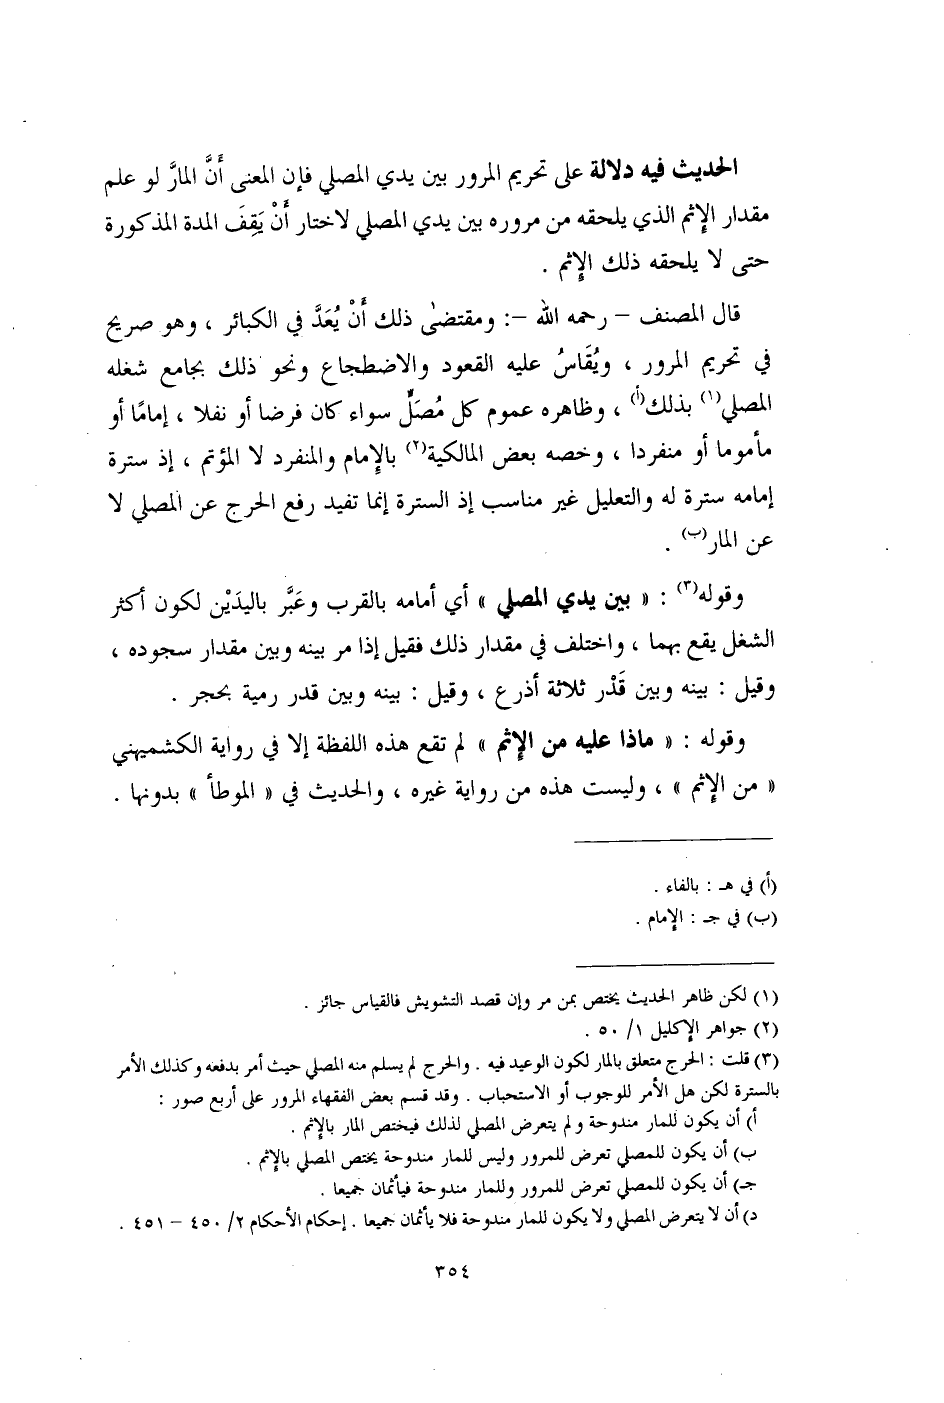 الحديث فيه دلالة على تحريم المرور بين يدي المصلي فإن المعنى أَنَّ المارَّ لو علم
مقدار الإِثم الذي يلحقه من مروره بين يدي المصلي لاختار أَنْ يَقِفَ المدة المذكورة
حتى لا يلحقه ذلك الإِثم .
قال المصنف – رحمه الله –: ومقتضىٰ ذلك أَنْ يُعَدَّ في الكبائر ، وهو صريح
في تحريم المرور ، ويُقَاسُ عليه القعود والاضطجاع ونحو ذلك بجامع شغله
المصلي(١) بذلك(أ) ، وظاهره عموم كل مُصَلٍّ سواء كان فرضا أو نفلا ، إمامًا أو
مأموما أو منفردا ، وخصه بعض المالكية(٢) بالإِمام والمنفرد لا المؤتم ، إذ سترة
إمامه سترة له والتعليل غير مناسب إذ السترة إنما تفيد رفع الحرج عن المصلي لا
عن المار(ب) .
وقوله(٣) : « بين يدي المصلي » أي أمامه بالقرب وعَبَّر باليدَيْن لكون أكثر
الشغل يقع بهما ، واختلف في مقدار ذلك فقيل إذا مر بينه وبين مقدار سجوده ،
وقيل : بينه وبين قَدْر ثلاثة أذرع ، وقيل : بينه وبين قدر رمية بحجر .
وقوله : « ماذا عليه من الإِثم » لم تقع هذه اللفظة إلا في رواية الكشميهني
« من الإِثم » ، وليست هذه من رواية غيره ، والحديث في « الموطأ » بدونها .
(أ) في هـ : بالفاء .
(ب) في جـ : الإِمام .
(١) لكن ظاهر الحديث يختص بمن مر وإن قصد التشويش فالقياس جائز .
(٢) جواهر الإكليل ١/ ٥٠ .
(٣) قلت : الحرج متعلق بالمار لكون الوعيد فيه . والحرج لم يسلم منه المصلي حيث أمر بدفعه وكذلك الأمر
بالسترة لكن هل الأمر للوجوب أو الاستحباب . وقد قسم بعض الفقهاء المرور على أربع صور :
أ) أن يكون للمار مندوحة ولم يتعرض المصلي لذلك فيختص المار بالإِثم .
ب) أن يكون للمصلي تعرض للمرور وليس للمار مندوحة يختص المصلي بالإِثم .
جـ) أن يكون للمصلي تعرض للمرور وللمار مندوحة فيأثمان جميعا .
د) أن لا يتعرض المصلي ولا يكون للمار مندوحة فلا يأثمان جميعا . إحكام الأحكام ٢/ ٤٥٠ – ٤٥١ .
٣٥٤